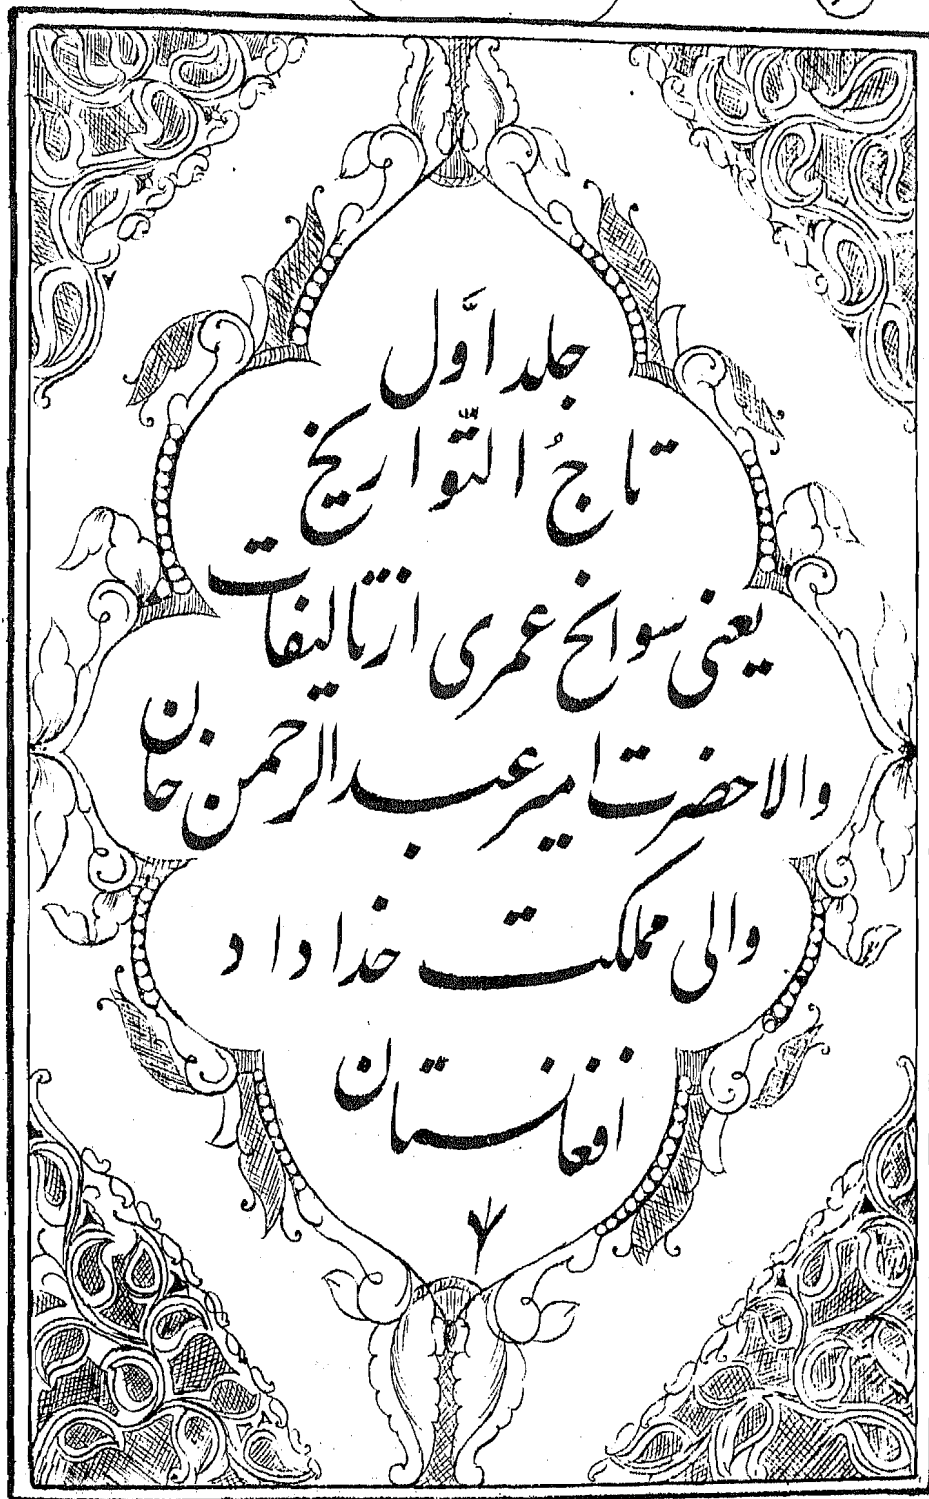 جلد اوَّل
تاجُ التّواریخ
یعنی سوانح عمری از تالیفات
والاحضرت امیر عبدالرحمن خان
والی مملکت خداداد
افغانستان